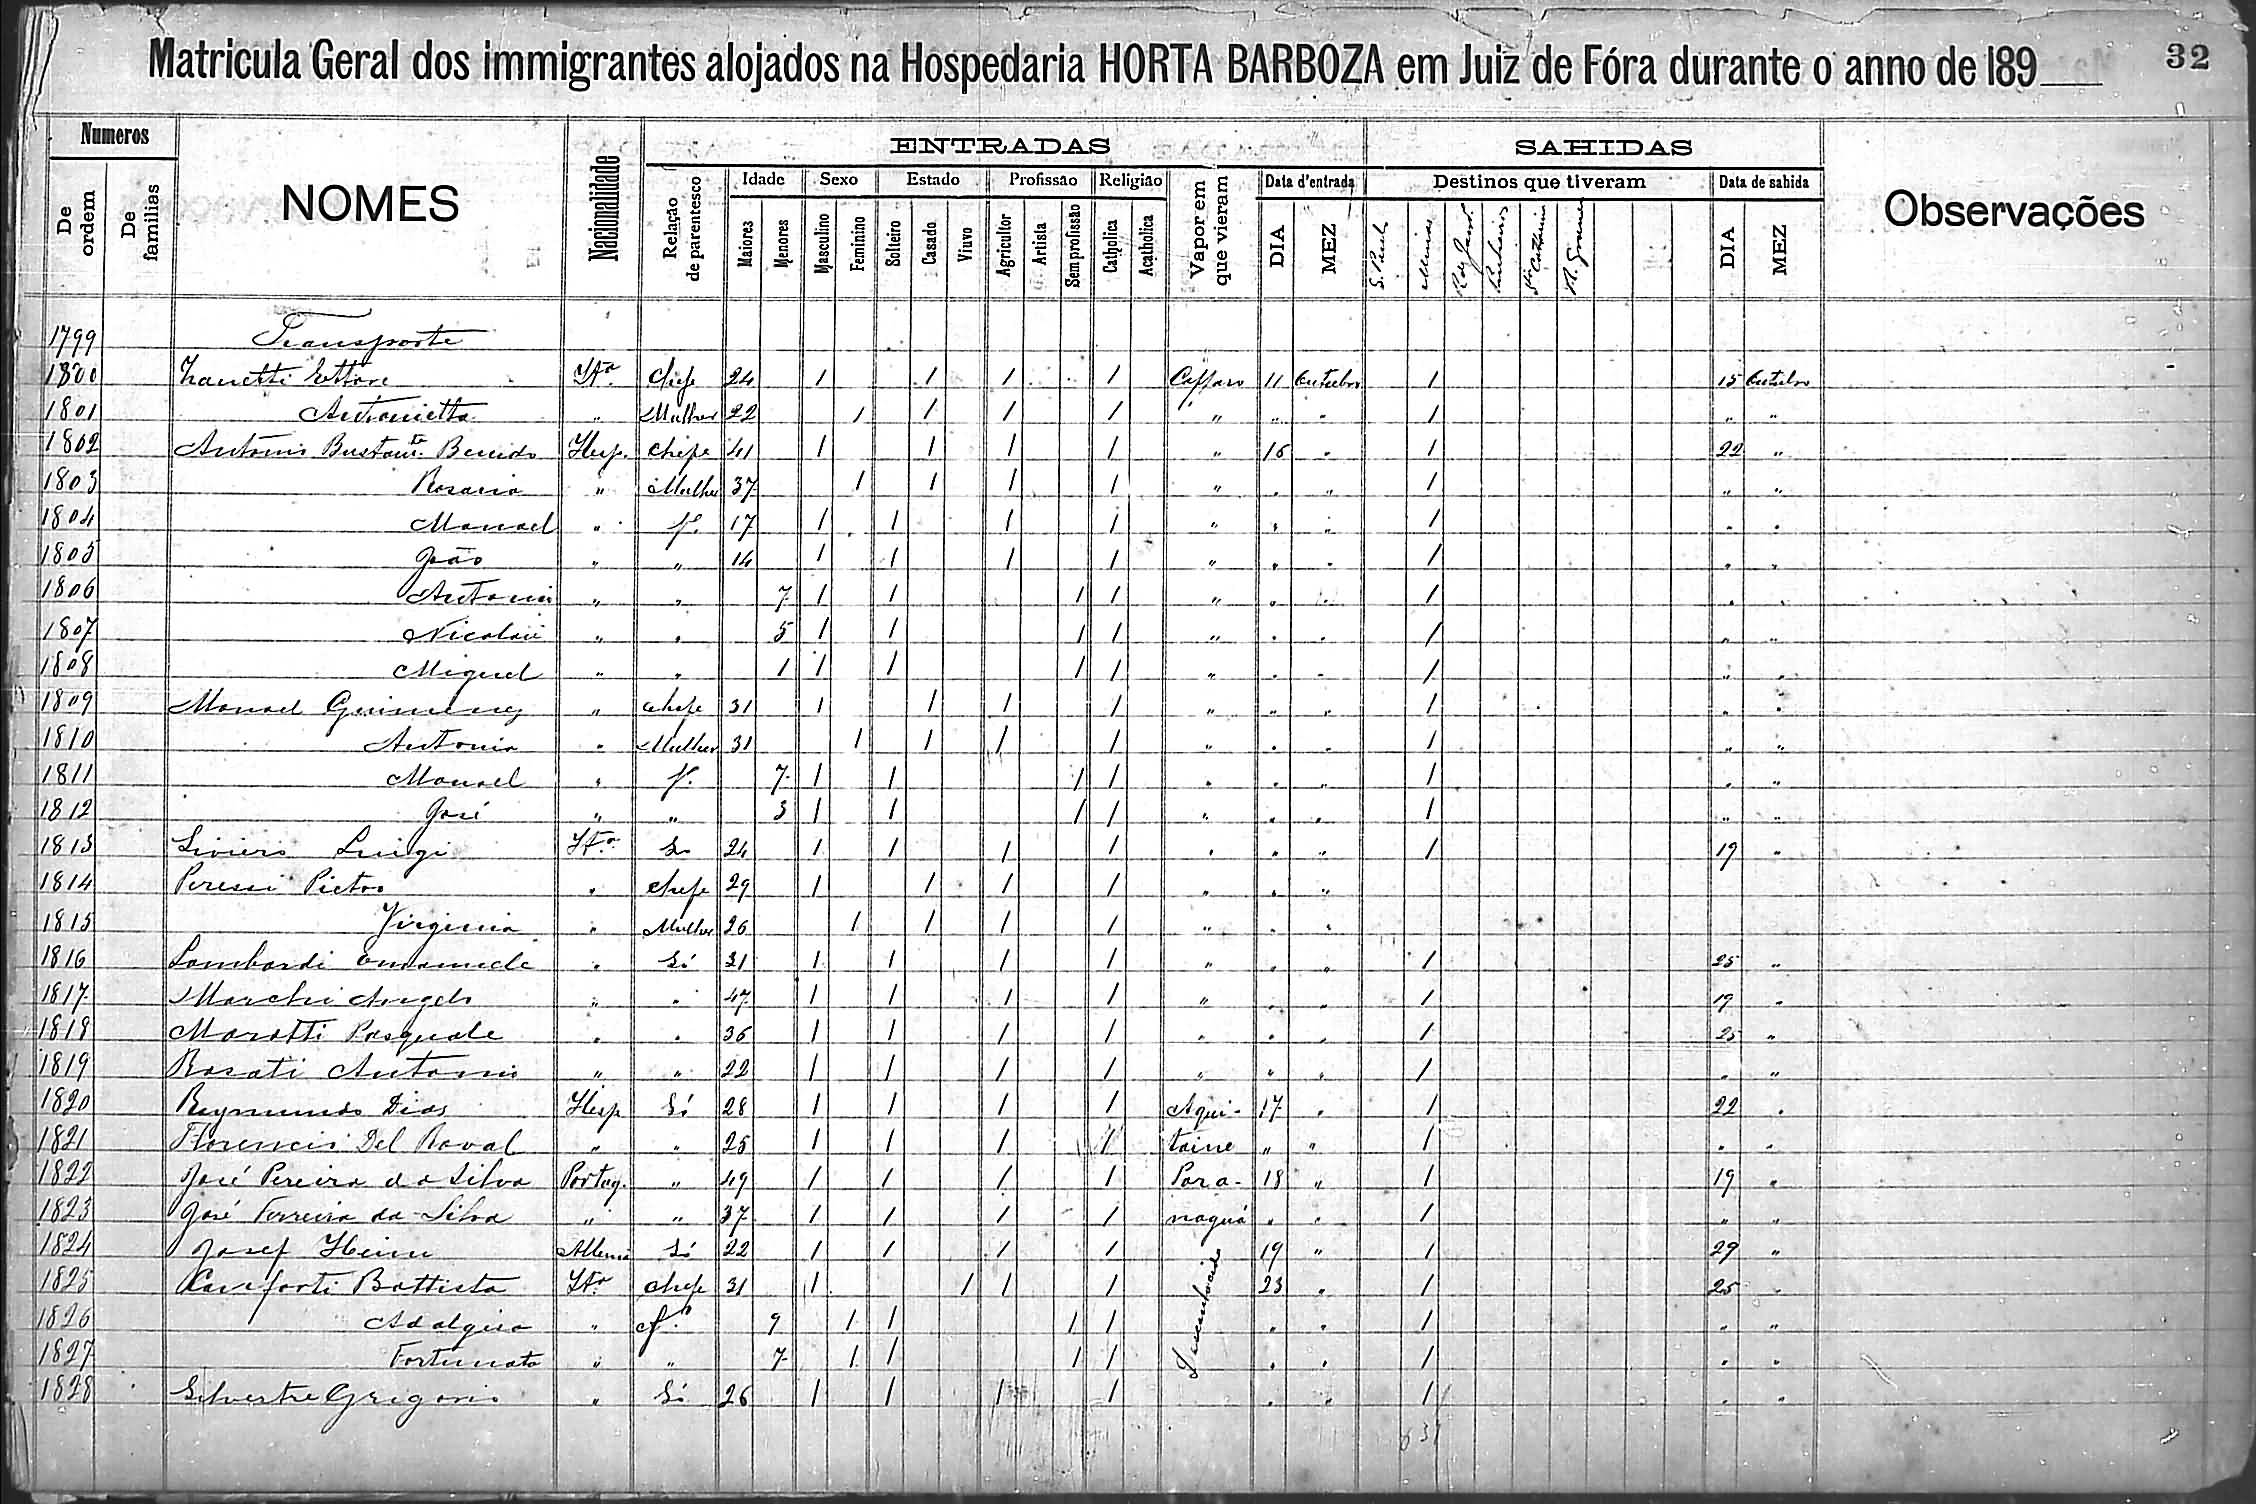 Matricula Geral dos immigrantes alojados na Hospedaria HORTA BARBOZA em Juiz de Fóra durante o anno de 189 32
Numeros ENTRADAS SAHIDAS
De ordem De familias NOMES Nacionalidade Relação de parentesco Idade Sexo Estado Profissão Religião Vapor em que vieram Data d'entrada Destinos que tiveram Data de sahida Observações
Maiores Menores Masculino Feminino Solteiro Casado Viuvo Agricultor Artista Sem profissão Catholica Acatholica DIA MEZ S. Paulo Minas DIA MEZ
1799 Transporte
1800 Zanetti Ettore Itª Chefe 24 1 1 1 1 11 Outubro 1 15 Outubro
1801 Antonietta " Mulher 22 1 1 1 1 " " " 1 " "
1802 Antonio Hesp. chefe 41 1 1 1 1 " 16 " 1 22 "
1803 Rosaria " Mulher 37 1 1 1 1 " " " 1 " "
1804 Manoel " fº 17 1 1 1 1 " " " 1 " "
1805 João " " 14 1 1 1 1 " " " 1 " "
1806 Antonio " " 7 1 1 1 1 " " " 1 " "
1807 Nicolau " " 5 1 1 1 1 " " " 1 " "
1808 Miguel " " 1 1 1 1 1 " " " 1 " "
1809 Manoel " chefe 31 1 1 1 1 " " " 1 " "
1810 Antonia " Mulher 31 1 1 1 1 " " " 1 " "
1811 Manoel " fº 7 1 1 1 1 " " " 1 " "
1812 José " " 3 1 1 1 1 " " " 1 " "
1813 Liviero Luigi Itª Só 24 1 1 1 1 " " " 1 19 "
1814 Pietro " chefe 29 1 1 1 1 " " "
1815 Virginia " Mulher 26 1 1 1 1 " " "
1816 Lombardi Emanuele " Só 31 1 1 1 1 " " " 1 25 "
1817 Marchi Angelo " " 47 1 1 1 1 " " " 1 19 "
1818 Marotti Pasquale " " 36 1 1 1 1 " " " 1 25 "
1819 Rosati Antonio " " 22 1 1 1 1 " " " 1 " "
1820 Raymundo Dias Hesp Só 28 1 1 1 1 Aqui- 17 " 1 22 "
1821 Florencio Del " " 25 1 1 1 1 taine " " 1 " "
1822 José Pereira da Silva Portug. " 49 1 1 1 1 Para- 18 " 1 19 "
1823 José Ferreira da Silva " " 37 1 1 1 1 naguá " " 1 " "
1824 Josef Heim Allemã Só 22 1 1 1 1 19 " 1 29 "
1825 Battista Itª chefe 31 1 1 1 1 23 " 1 25 "
1826 " fº 9 1 1 1 1 " " 1 " "
1827 Fortunata " " 7 1 1 1 1 " " 1 " "
1828 Silvestre Gregorio " Só 26 1 1 1 1 " " 1 " "